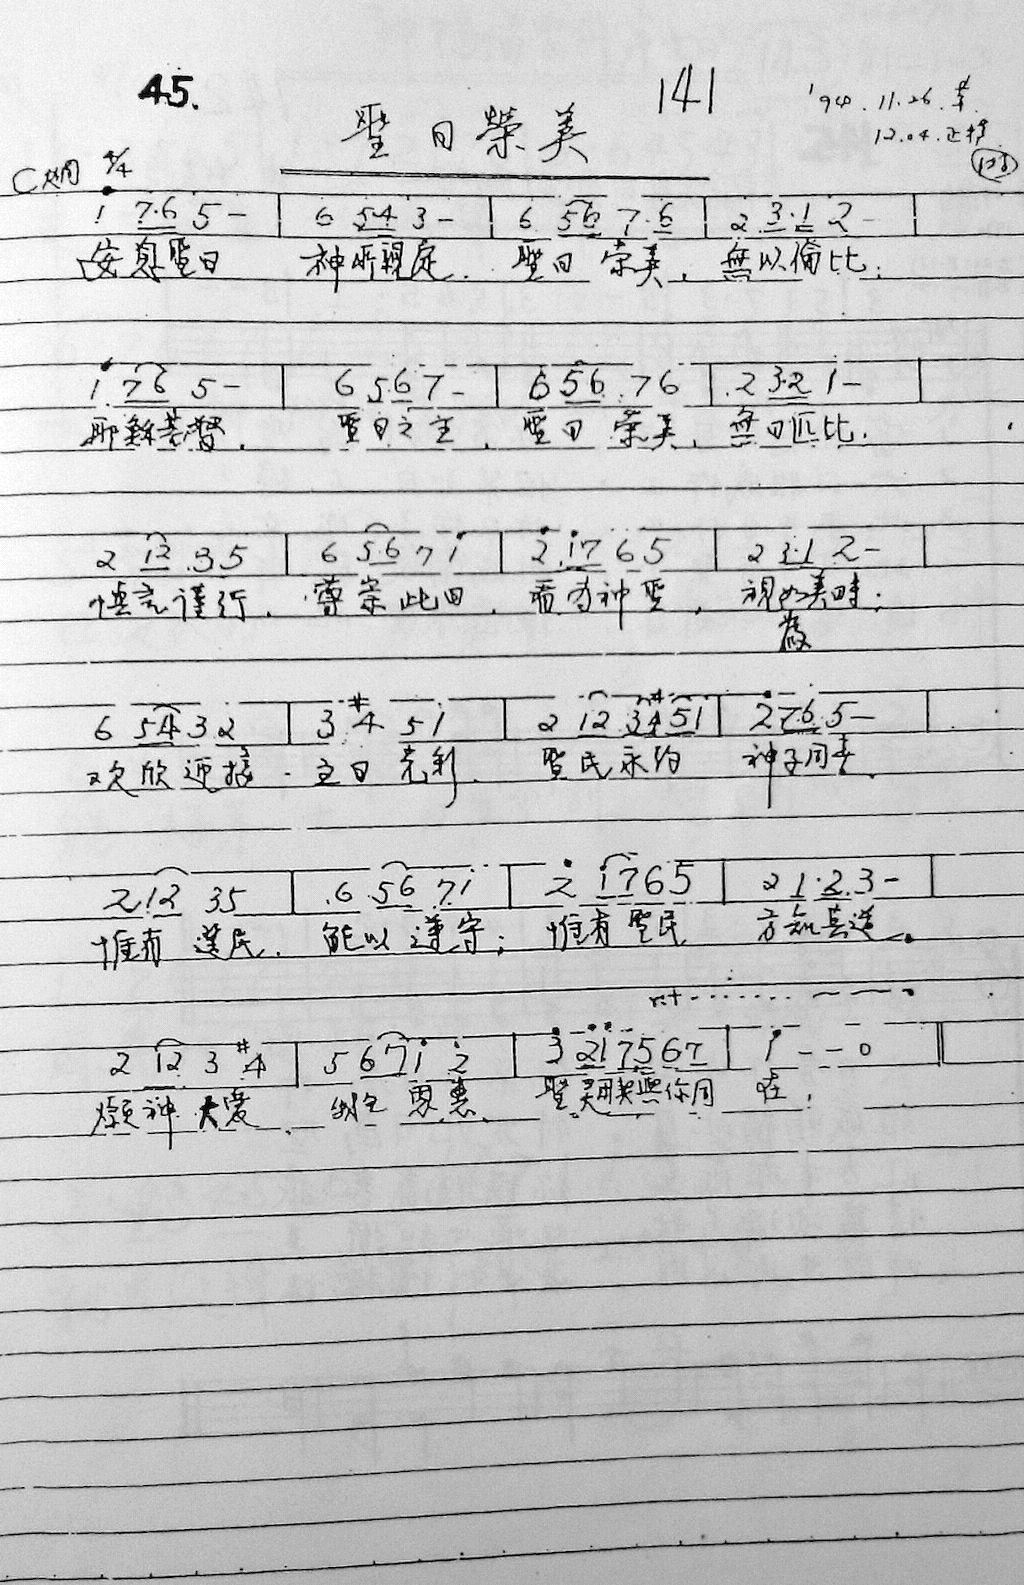 45.
141
'94.11.26.草
12.04.正稿
聖日榮美
C調 4/4
1 7·6 5 — | 6 54 3 — | 6 56 7·6 | 2 3·1 2 —
安息聖日 神所親定. 聖日榮美, 無以倫比;
1 76 5 — | 6 5·6 7 — | 6 56 76 | 2 3·2 1 —
耶穌基督, 聖日之主, 聖日榮美, 無日匹比.
2 12 35 | 6 5·6 7 1 | 2 17 6 5 | 2 3·1 2 —
謹行, 尊崇此日, 看為神聖, 視如美時;
6 54 3 2 | 3 #4 5 1 | 2 12 3#4 51 | 2 7·6 5 —
欢欣迎接 主日 聖民永约 神子同
2 12 35 | 6 56 71 | 2 1765 | 2 1·2 3 —
惟有選民, 能以遵守; 惟有聖民 方知其道。
2 12 3 #4 | 5 671 2 | 3 21 75 67 | 1 — — 0
願神大愛 恩惠 聖灵與你同在.